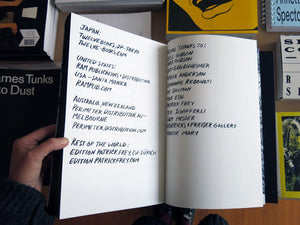 JAPAN:
TWELVEBOOKS, JP-TOKYO
TWELVE-BOOKS.COM
UNITED STATES:
RAM PUBLICATIONS + DISTRIBUTION,
USA-SANTA MONICA
RAMPUB.COM
AUSTRALIA, NEW ZEALAND
PERIMETER DISTRIBUTION, AU-
MELBOURNE
PERIMETERDISTRIBUTION.COM
REST OF THE WORLD:
EDITION PATRICK FREY, CH-ZÜRICH
EDITIONPATRICKFREY.COM
THANKS TO:
GIBSON
ANDERSON
REDONATI
SALMAN
FREY
SCHIFFERLI
MEGGER
FREDERICKS + FREISER GALLERY
MARY
James Tunks
to Dust
Spectac